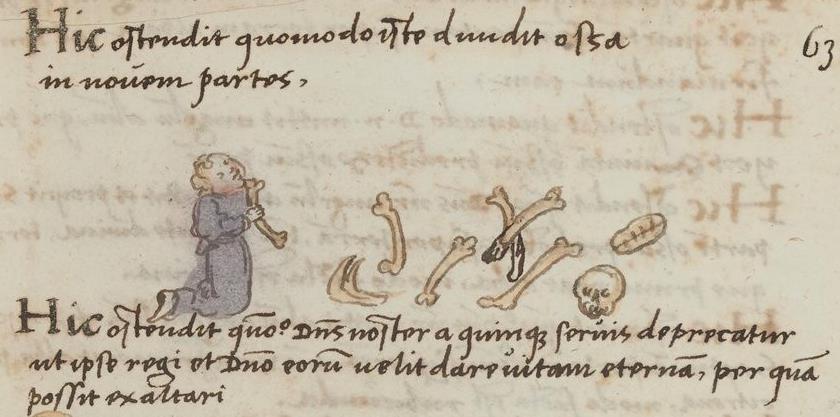 Hic ostendit quomodo iste diuidit ossa
63
in novem partes,
Hic ostendit quō° Dn̄s noster a quinq; servis deprecatur
ut ipse regi et Dn̄o eorū uelit dare vitam eternā, per quā
possit exaltari